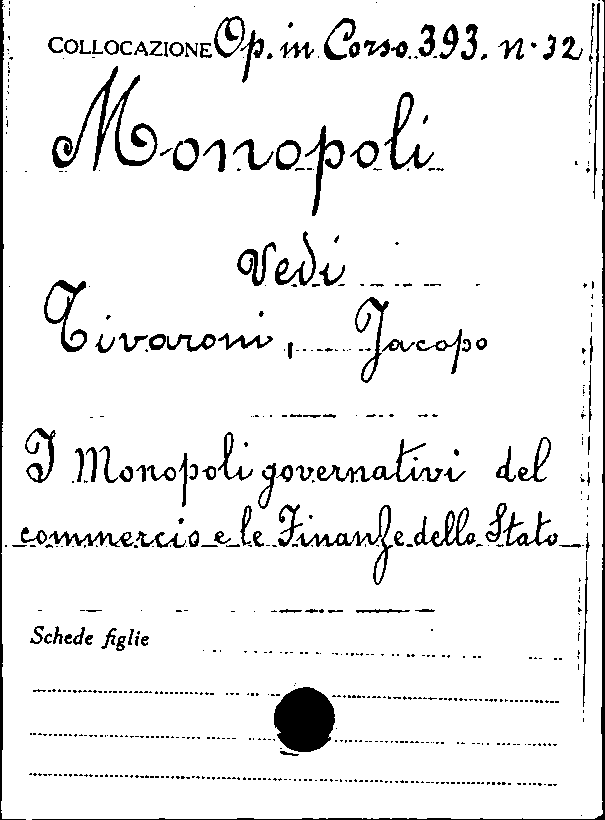 COLLOCAZIONE Op. in Corso 393. n. 32
Monopoli
Vedi
Tivaroni, Jacopo
I Monopoli governativi del
commercio e le Finanze dello Stato
Schede figlie